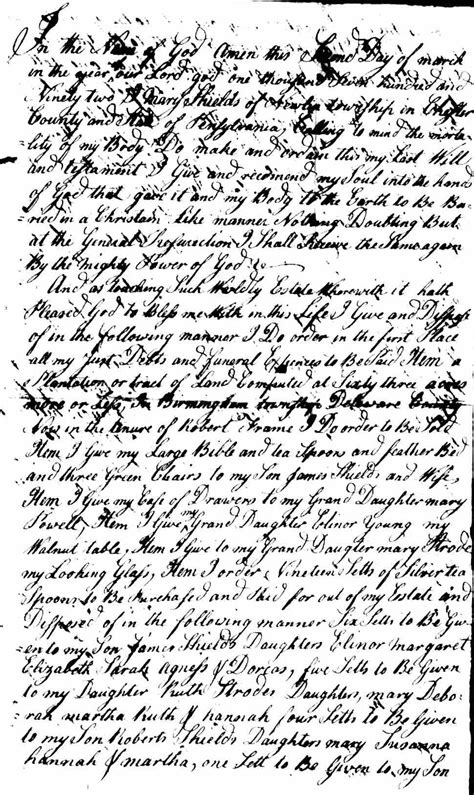 In the Name of God Amen this Second Day of march
in the year our Lord god one thousand Seven hundred and
Ninety two I Mary Shields of Township in Chester
County and State of Pensylvania Calling to mind the morta-
lity of my Body Do make and ordain this my Last Will
and testament I Give and recomend my Soul into the hand
of God that gave it and my Body to the Earth to Be Bu-
=ried in a Christian Like manner Nothing Doubting But
at the General I Shall Receive the Same again
By the mighty Power of God
And as touching Such Worldly Estate Wherewith it hath
Pleased God to Bless me With in this Life I Give and Dispose
of in the following manner I Do order in the first Place
all my Just Debts and funeral Expences to Be Paid Item a
Plantation or tract of Land Computed at Sixty three acres
more or Less In Birmingham township Delaware County
Now in the tenure of Robert Frame I Do order to Be Sold
Item I Give my Large Bible and tea Spoon and feather Bed
and three Green Chairs to my Son James Shields and Wife,
Item I Give my Case of Drawers to my Grand Daughter mary
Item I Give my Grand Daughter Elinor Young my
Walnut table, Item I Give to my Grand Daugter mary Strode
my Looking Glass, Item I order Nineteen Setts of Silver tea
Spoons to Be Purchased and Paid for out of my Estate and
Disposed of in the following manner Six Setts to Be Giv-
en to my Son James Shields Daughters Elinor margaret
Elizabeth Sarah Agness & Dorcas, five Setts to Be Given
to my Daughter Ruth Strodes Daughters, mary Debo-
rah martha Ruth & hannah four Setts to Be Given
to my Son Roberts Shields Daughters mary Susanna
hannah & martha, one Sett to Be Given to my Son